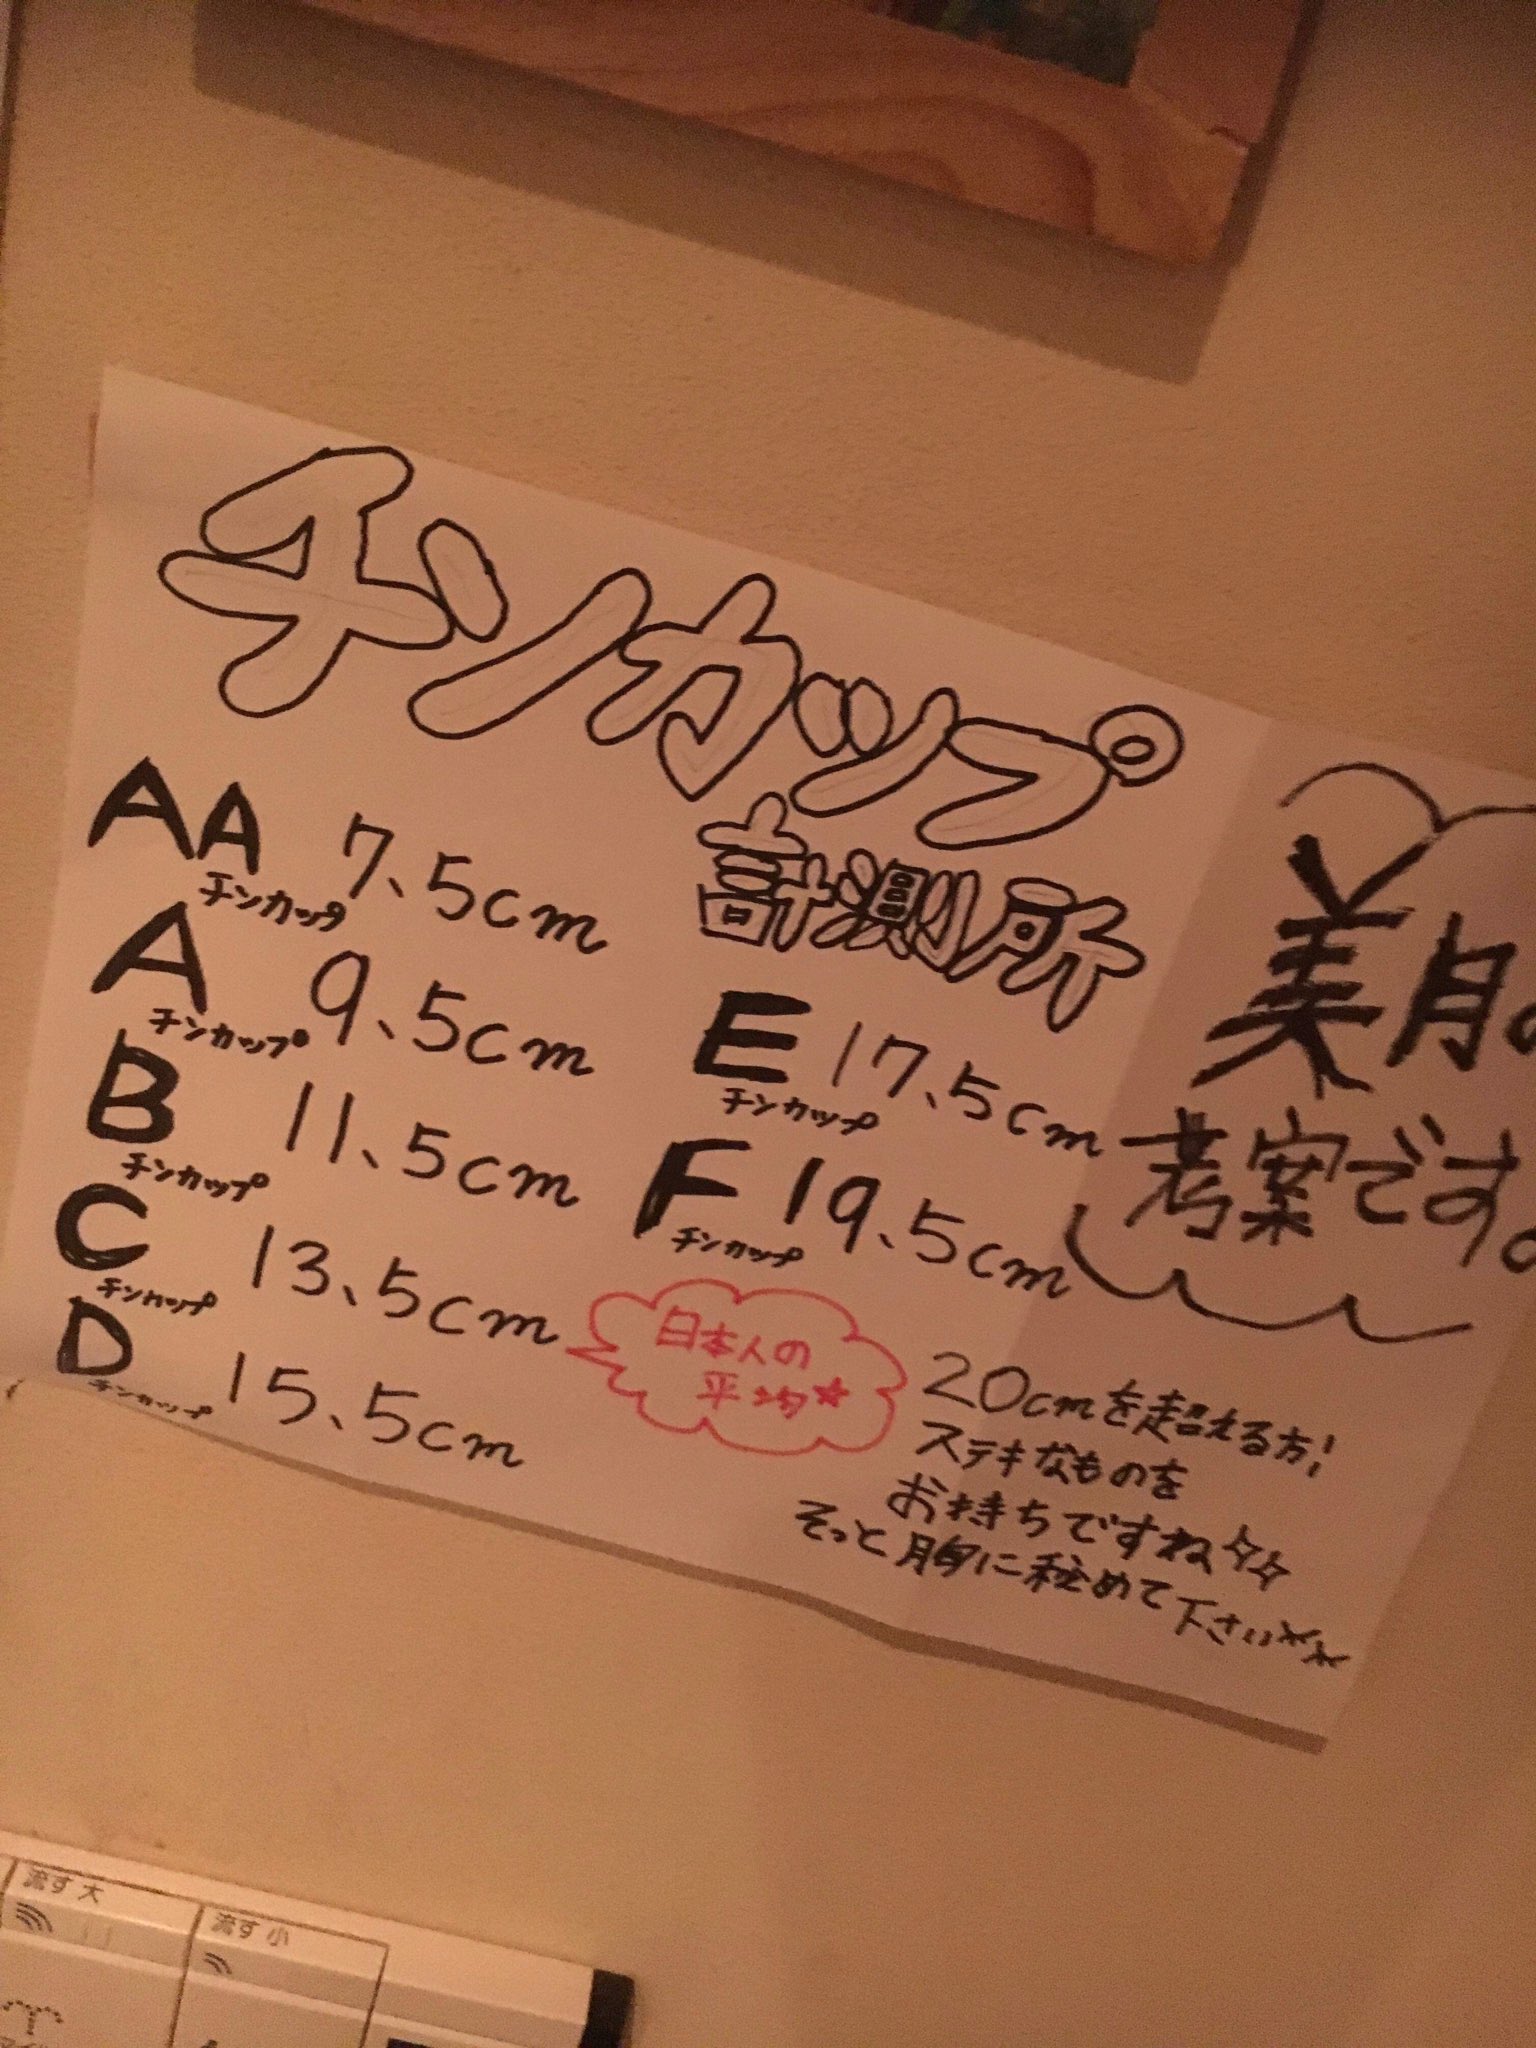 チンカップ
計測所
AA チンカップ 7、5cm
A チンカップ 9、5cm
B チンカップ 11、5cm
C チンカップ 13、5cm
D チンカップ 15、5cm
E チンカップ 17、5cm
F チンカップ 19、5cm
日本人の
平均☆
美月の
考案です。
20cmを超える方!
ステキなものを
お持ちですね
そっと胸に秘めて下さい
流す 大
流す 小